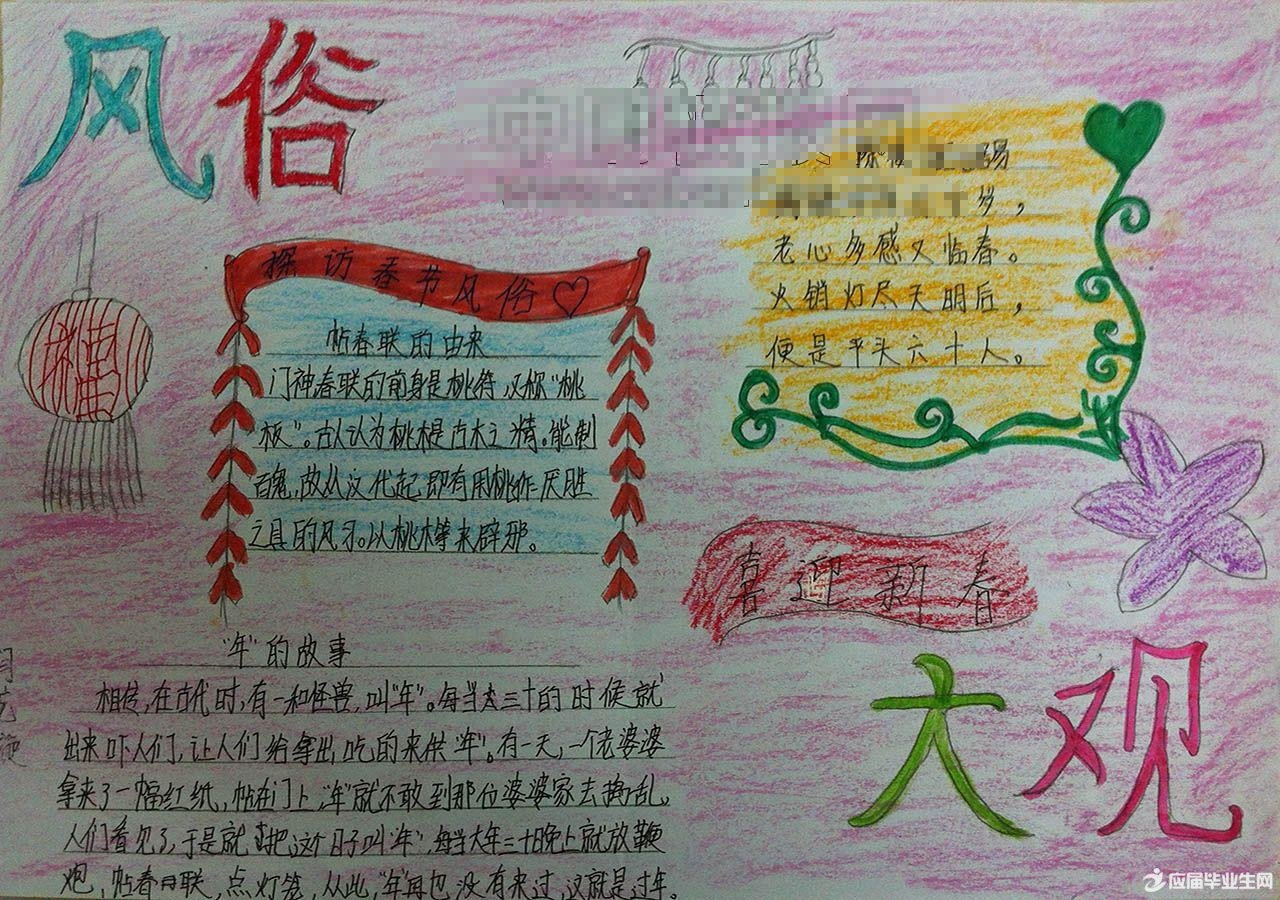 风俗
探访春节风俗
帖春联的由来
门神春联的前身是桃符,又称"桃
板"。古人认为桃木是百木之精。能制
百鬼,故从汉代起即有用桃作厌胜
之具的风习。以桃木等来辟邪。
多,
老心多感又临春。
火销灯尽天明后,
便是平头六十人。
喜迎新春
"年"的故事
相传,在古代时,有一种怪兽,叫"年"。每当大三十的时候就
出来吓人们,让人们给拿出吃的来供"年"。有一天,一个老婆婆
拿来了一幅红纸,帖在门上,"年"就不敢到那位婆婆家去捣乱。
人们看见了,于是就把这个日子叫"年",每当大年三十晚上就放鞭
炮,帖春联,点灯笼,从此,"年"再也没有来过,这就是过年。
大观
应届毕业生网